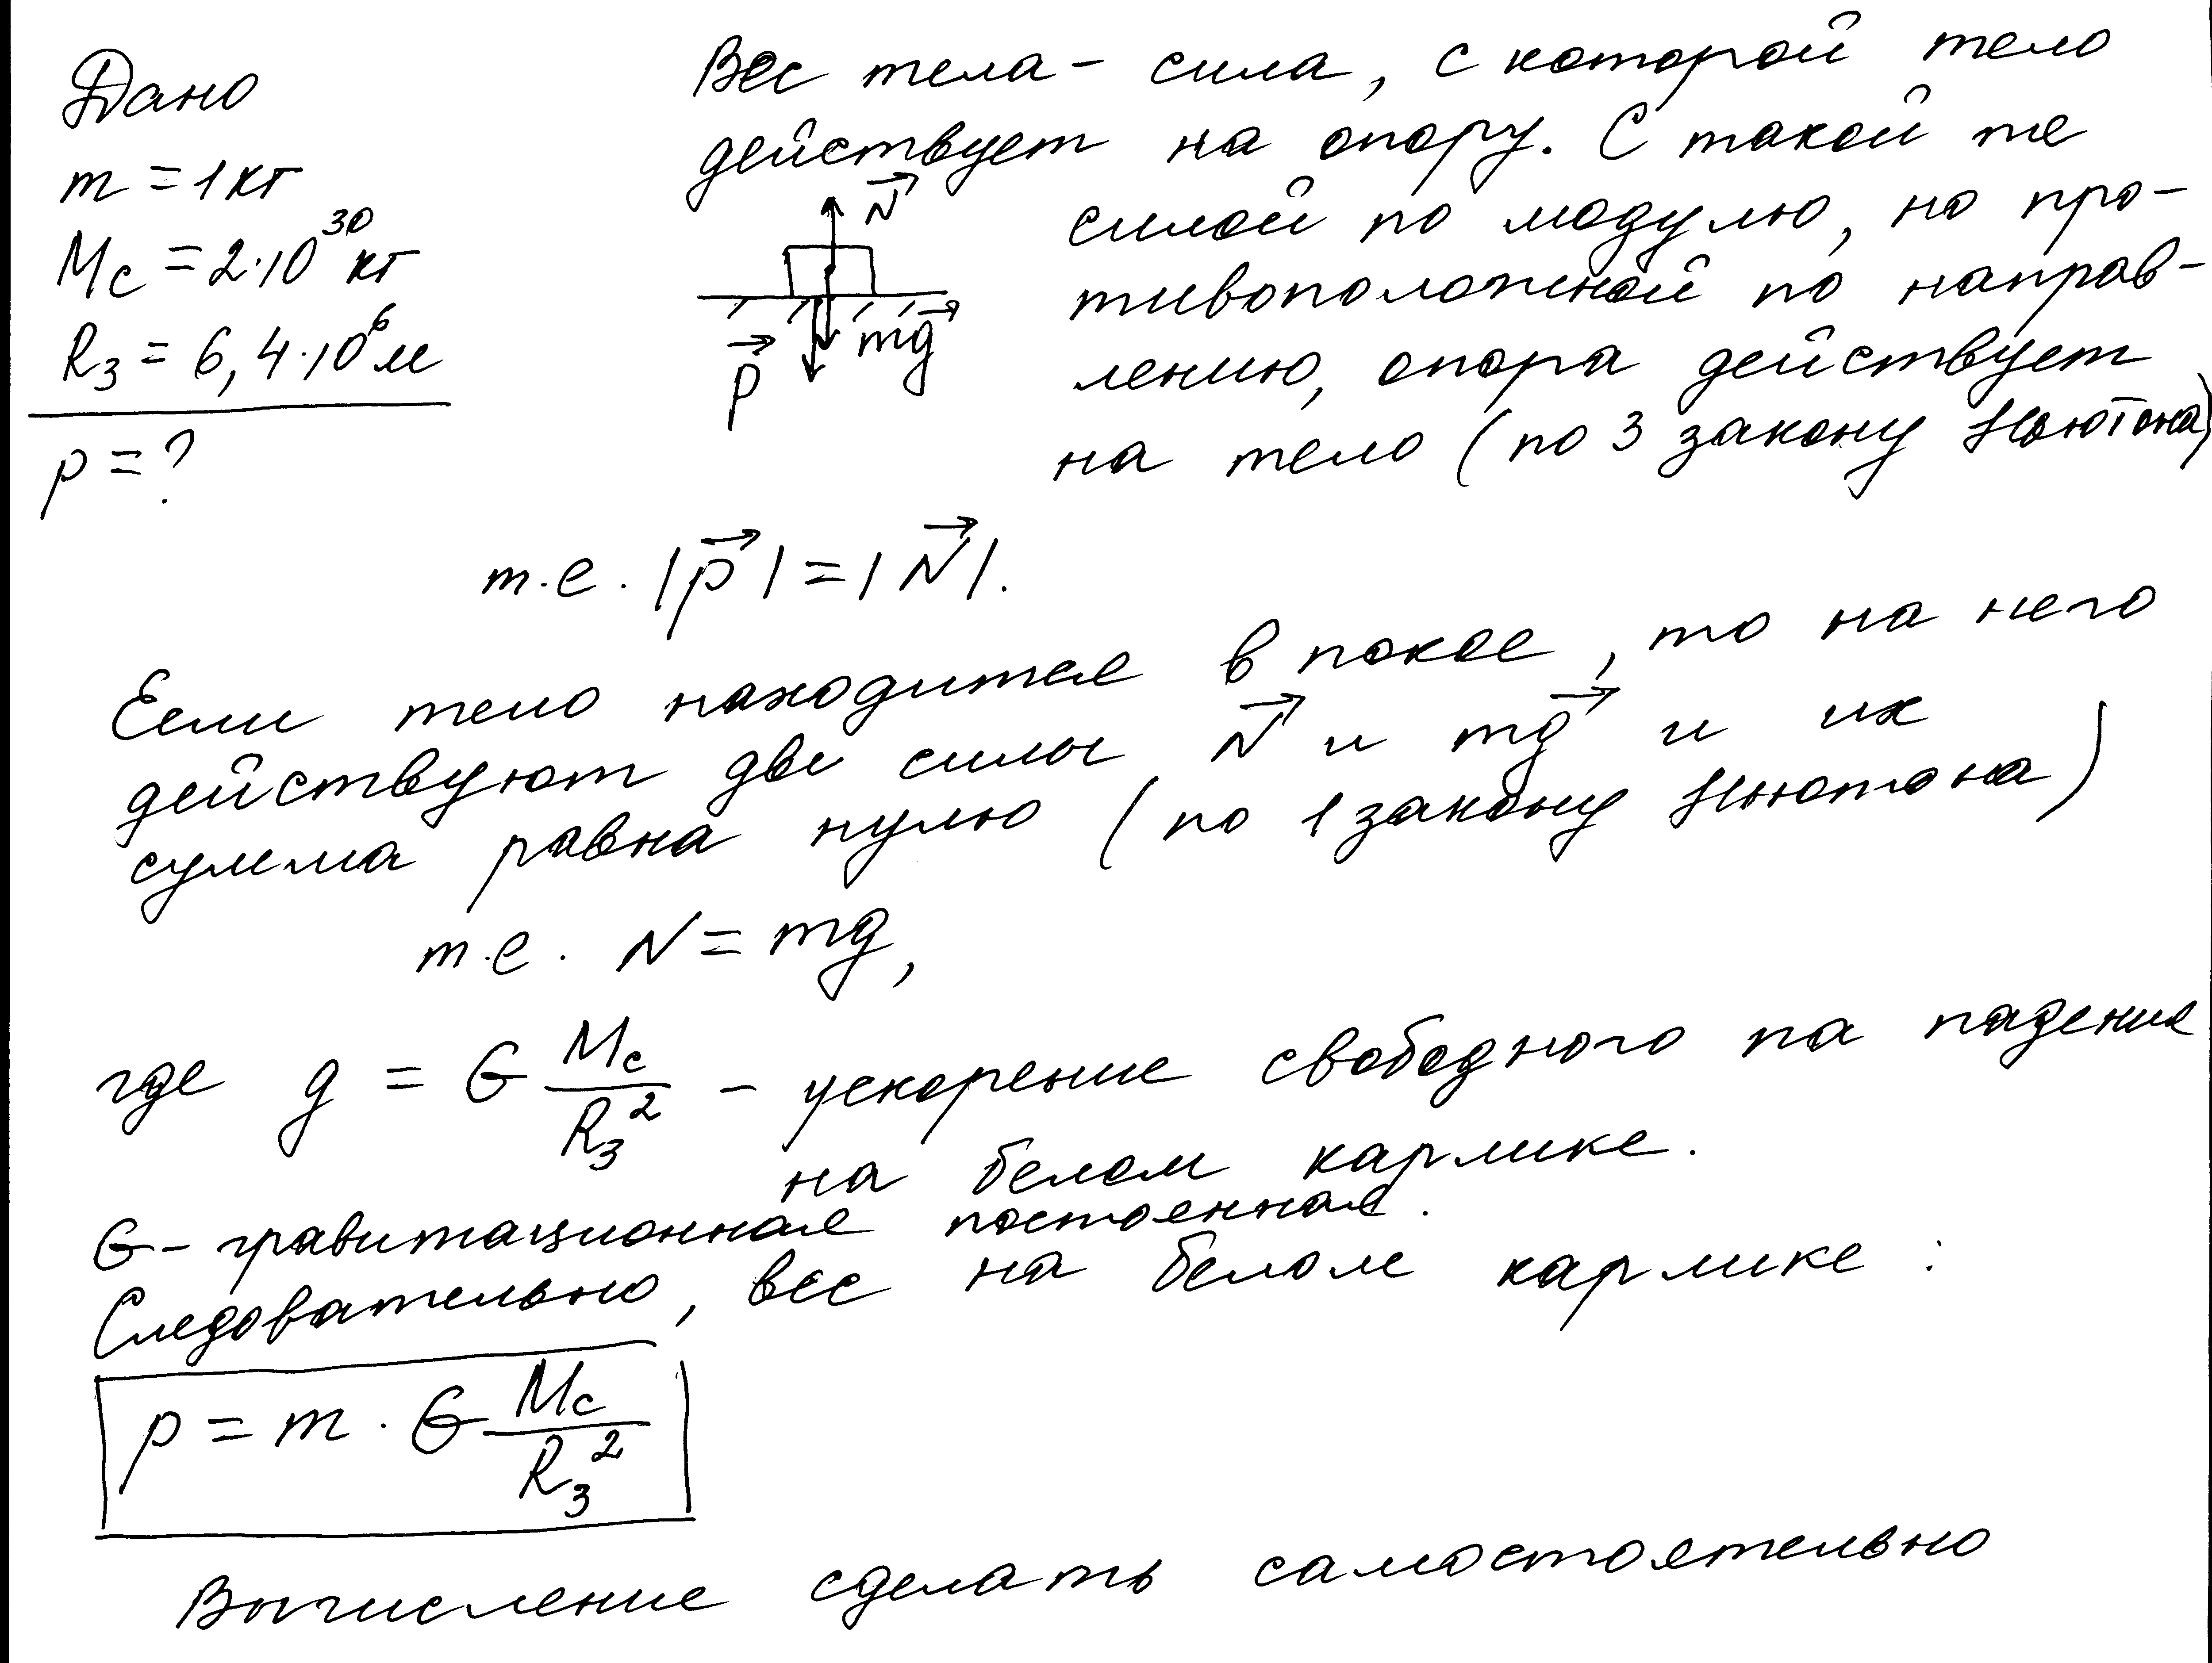 Дано
m = 1 кг
Mс = 2·10³⁰ кг
Rз = 6,4·10⁶ м
p = ?
Вес тела - сила, с которой тело
действует на опору. С такой же
силой по модулю, но про-
тивоположной по направ-
лению, опора действует
на тело (по 3 закону Ньютона)
N
mg
p
т.е. |p| = |N|.
Если тело находится в покое, то на него
действуют две силы N и mg и их
сумма равна нулю (по 1 закону Ньютона)
т.е. N = mg,
где g = G Mс/Rз² - ускорение свободного па падения
на белом карлике.
G - гравитационная постоянная.
Следовательно, вес на белом карлике :
p = m · G Mс/Rз²
Вычисление сделать самостоятельно